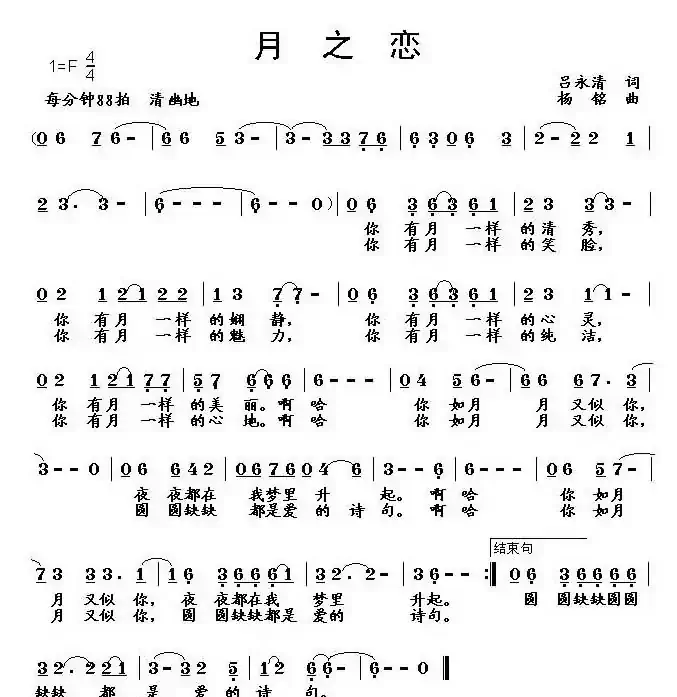 月之恋
1=F 4/4
每分钟88拍 清幽地
吕永清 词
杨铭 曲
(0 6 7 6- | 6 6 5 3- | 3- 3 3 7 6 | 6 3 0 6 3 | 2- 2 2 1 |
2 3. 3- | 6--- | 6--0) | 0 6 3 6 3 6 1 | 2 3 3 3- |
你 有月 一样 的清 秀,
你 有月 一样 的笑 脸,
0 2 1 2 1 2 2 | 1 3 7 7- | 0 6 3 6 3 6 1 | 2 3 1 1- |
你 有月 一样 的娴 静, 你 有月 一样 的心 灵,
你 有月 一样 的魅 力, 你 有月 一样 的纯 洁,
0 2 1 2 1 7 7 | 5 7 6 6 6 | 6--- | 0 4 5 6- | 6 6 6 7. 3 |
你 有月 一样 的美 丽。啊 哈 你 如月 月 又似 你,
你 有月 一样 的心 地。啊 哈 你 如月 月 又似 你,
3--0 | 0 6 6 4 2 | 0 6 7 6 0 4 6 | 3--6 | 6--- | 0 6 5 7- |
夜 夜都在 我梦里 升 起。啊 哈 你 如月
圆 圆缺缺 都是爱 的 诗 句。啊 哈 你 如月
结束句
7 3 3 3. 1 | 1 6 3 6 6 6 1 | 3 2. 2- | 3 6-- :| 0 6 3 6 6 6 6 |
月 又似 你, 夜 夜都在我 梦里 升起。 圆 圆缺缺圆圆
月 又似 你, 圆 圆缺缺都是 爱的 诗句。
3 2. 2 2 1 | 3- 3 2 5 | 1 2 6 6- | 6--0 ‖
缺缺 都 是 爱 的 诗 句。